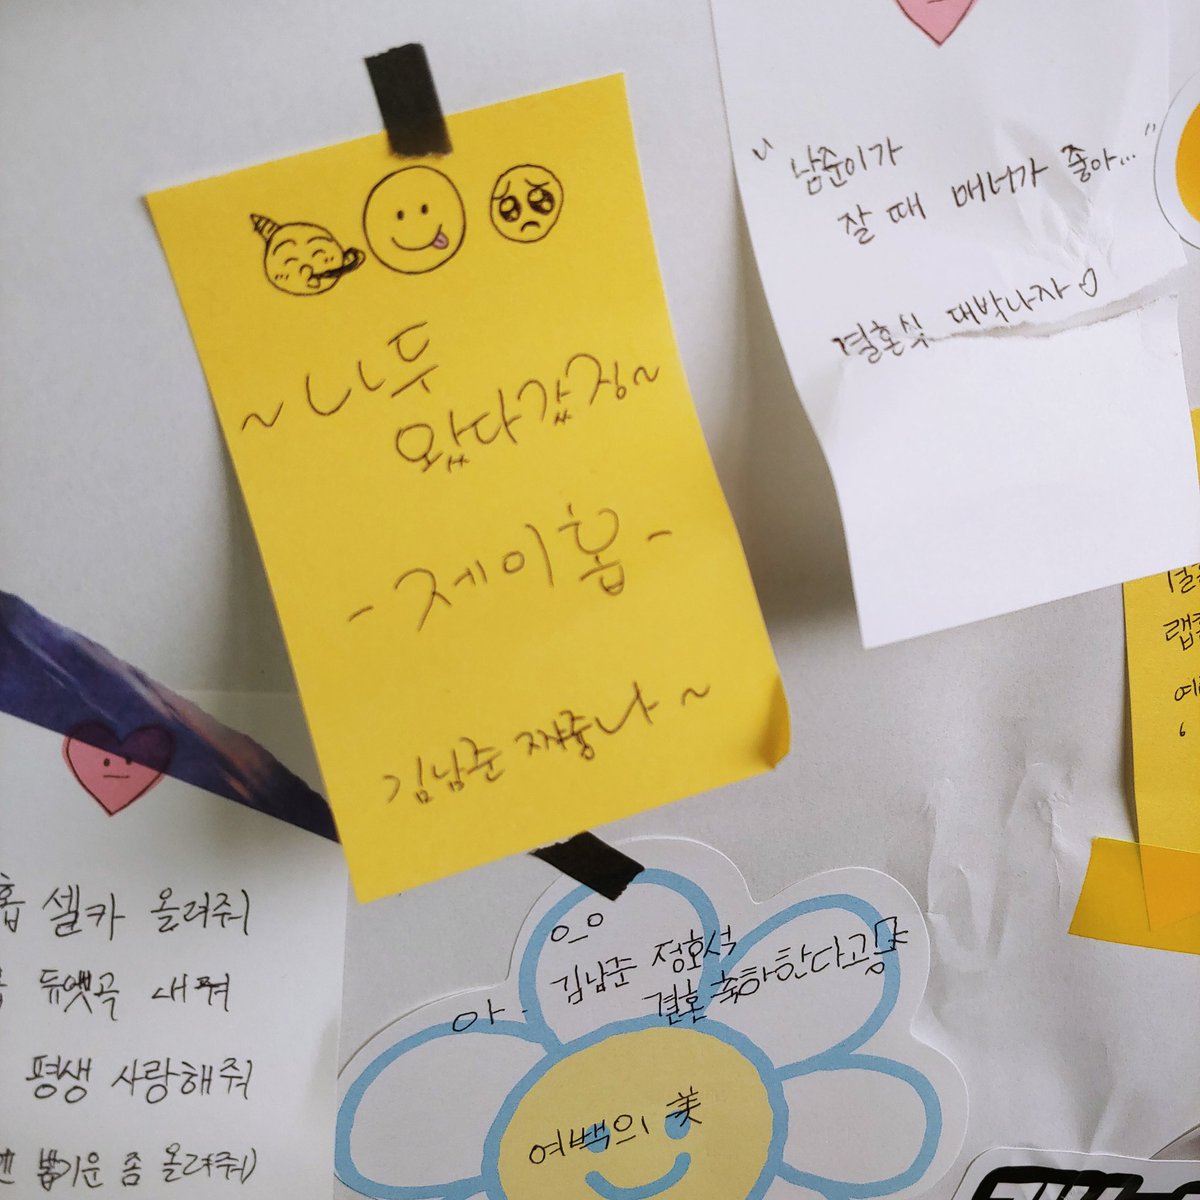 ~나두
왔다갔징~
-제이홉-
김남준 쨔쥼나~
"남준이가
잘 때 매너가 좋아..."
결혼식 대박나자♡
홉 셀카 올려줘
듀엣곡 내줘
평생 사랑해줘
좀 올려줘)
ㅇ_ㅇ
김남준 정호석
아- 결혼 축하한다고
여백의 美